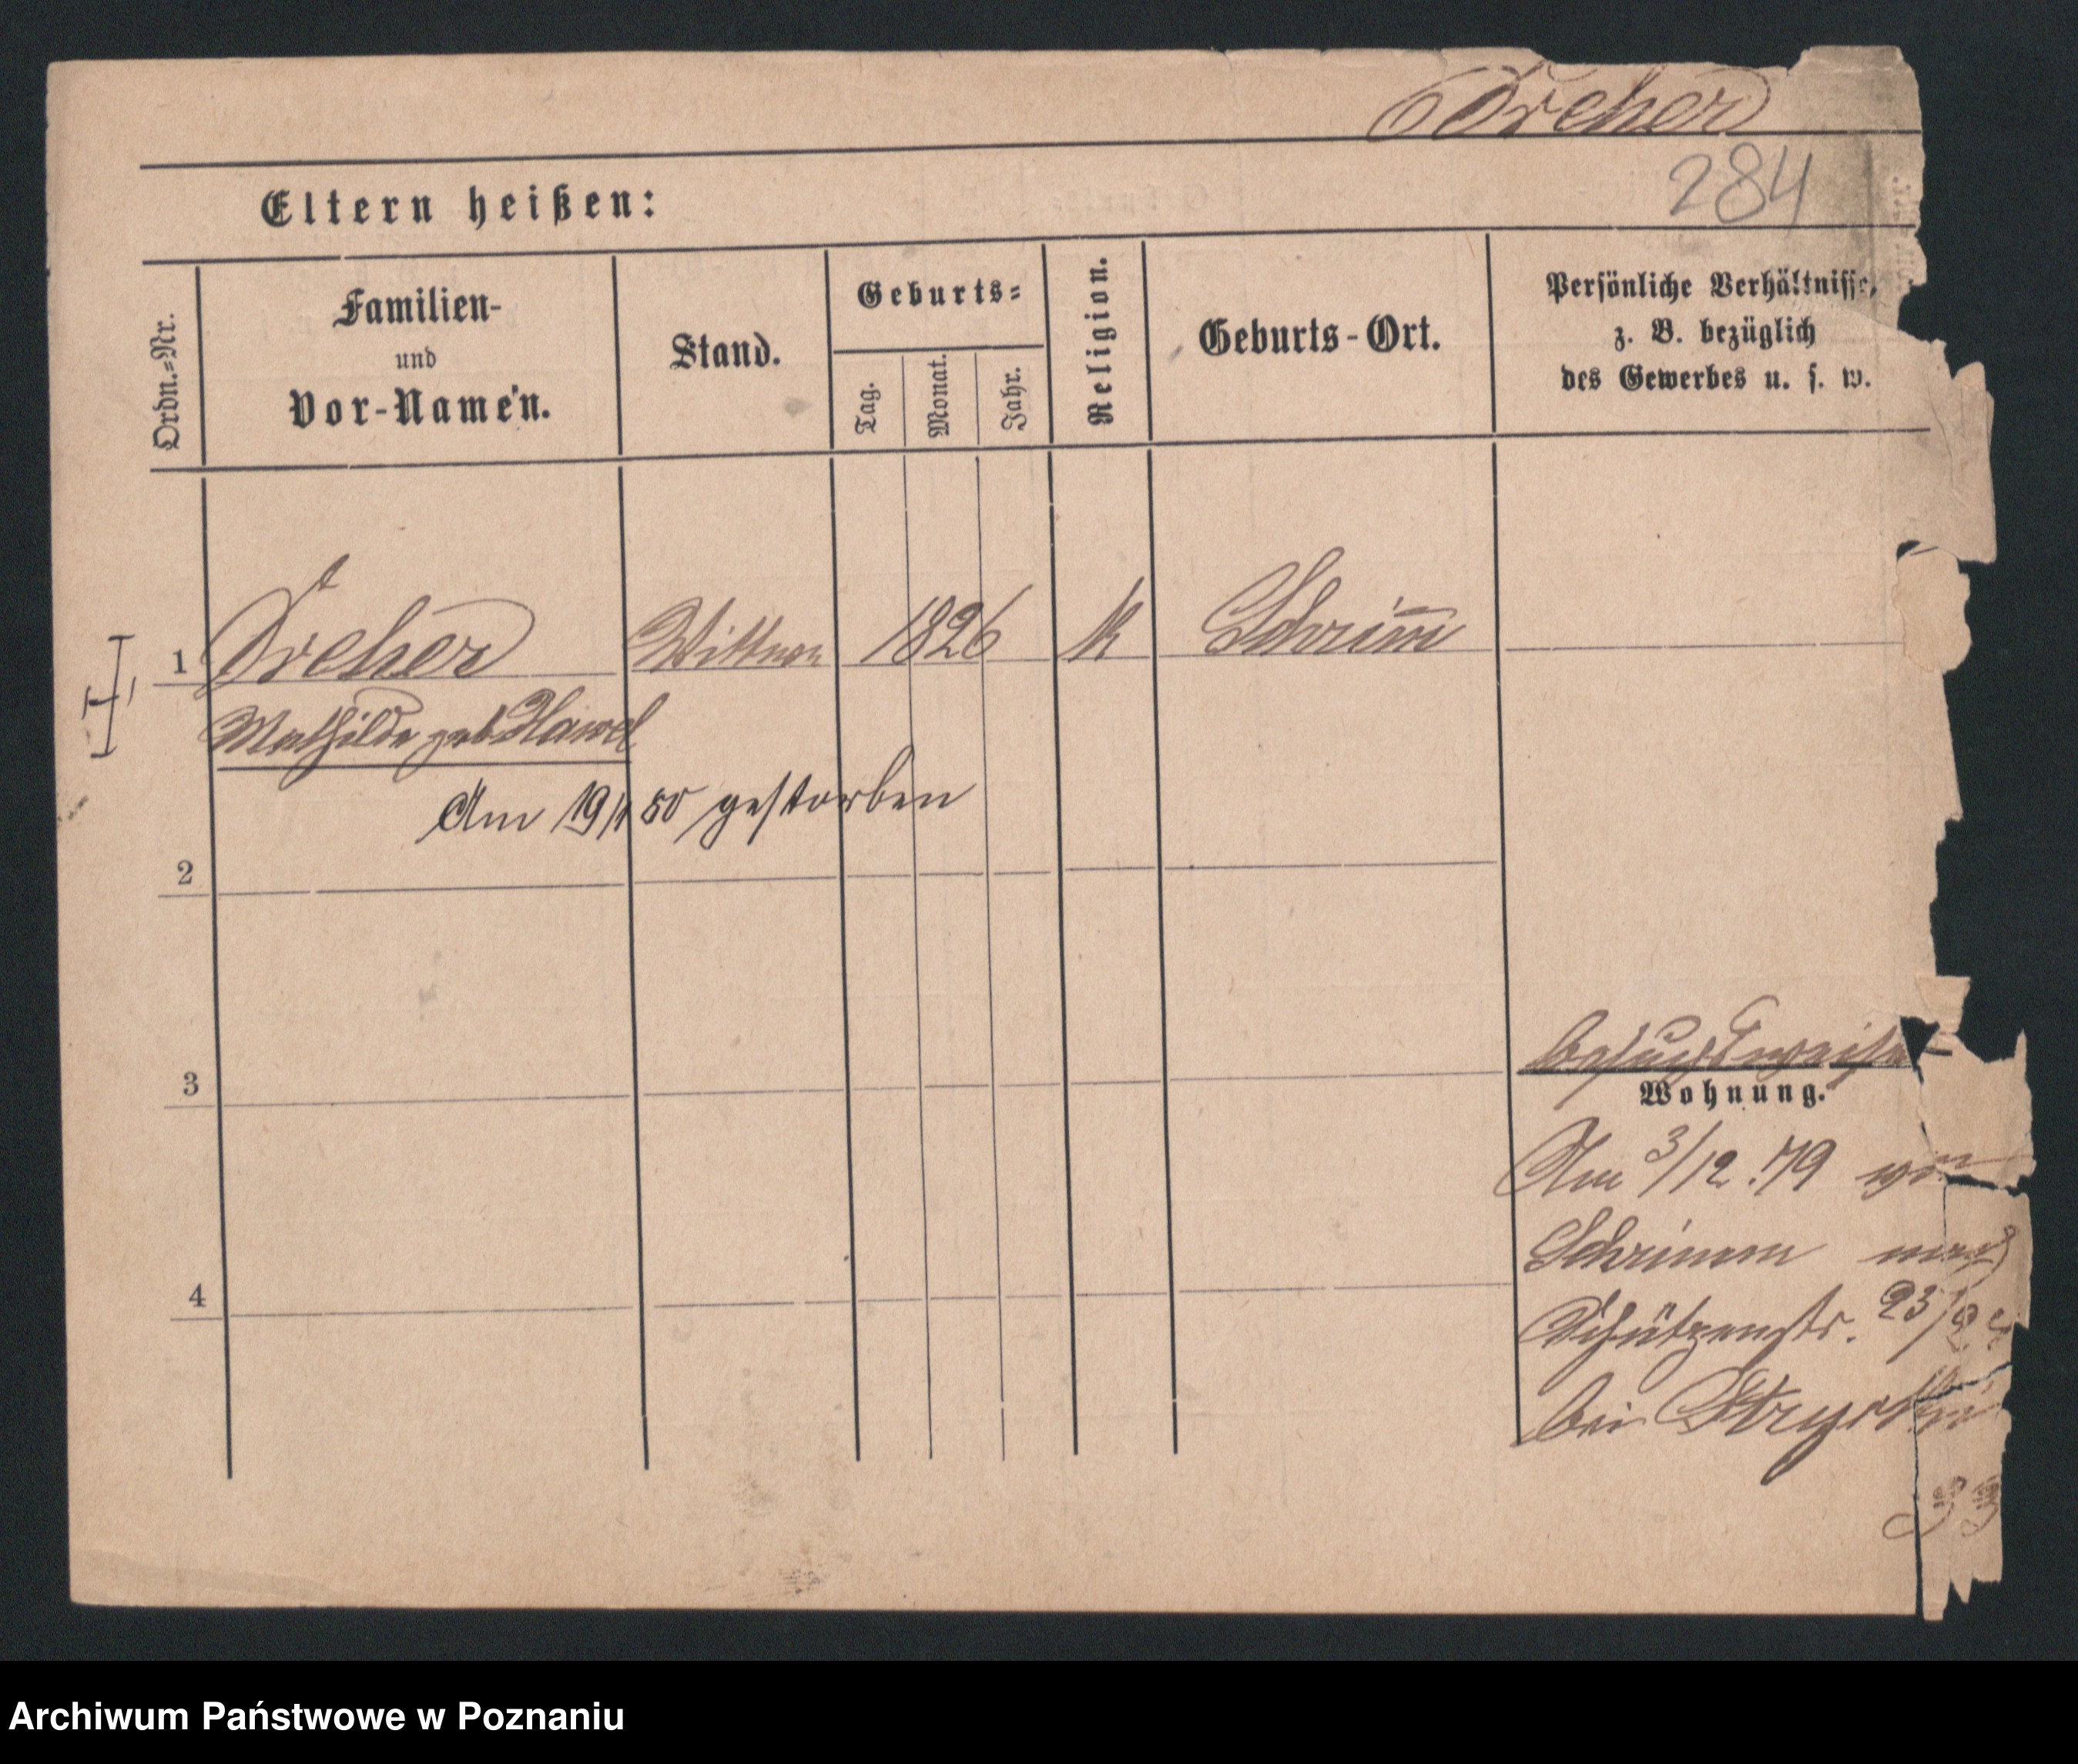 Dreher
284
Eltern heißen:
Ordn.=Nr.
Familien-
und
Vor-Namen.
Stand.
Geburts=
Tag.
Monat.
Jahr.
Religion.
Geburts-Ort.
Persönliche Verhältnisse,
z. B. bezüglich
des Gewerbes u. s. w.
1 Dreher Wittwe 1826 k Schrim̄
Mathilde geb Hawel
Am 19/1 80 gestorben
2
3
besuchsweise
Wohnung.
Am 3/12. 79 von
Schrimm nach
4
Schützenstr. 23/24
bei
Archiwum Państwowe w Poznaniu